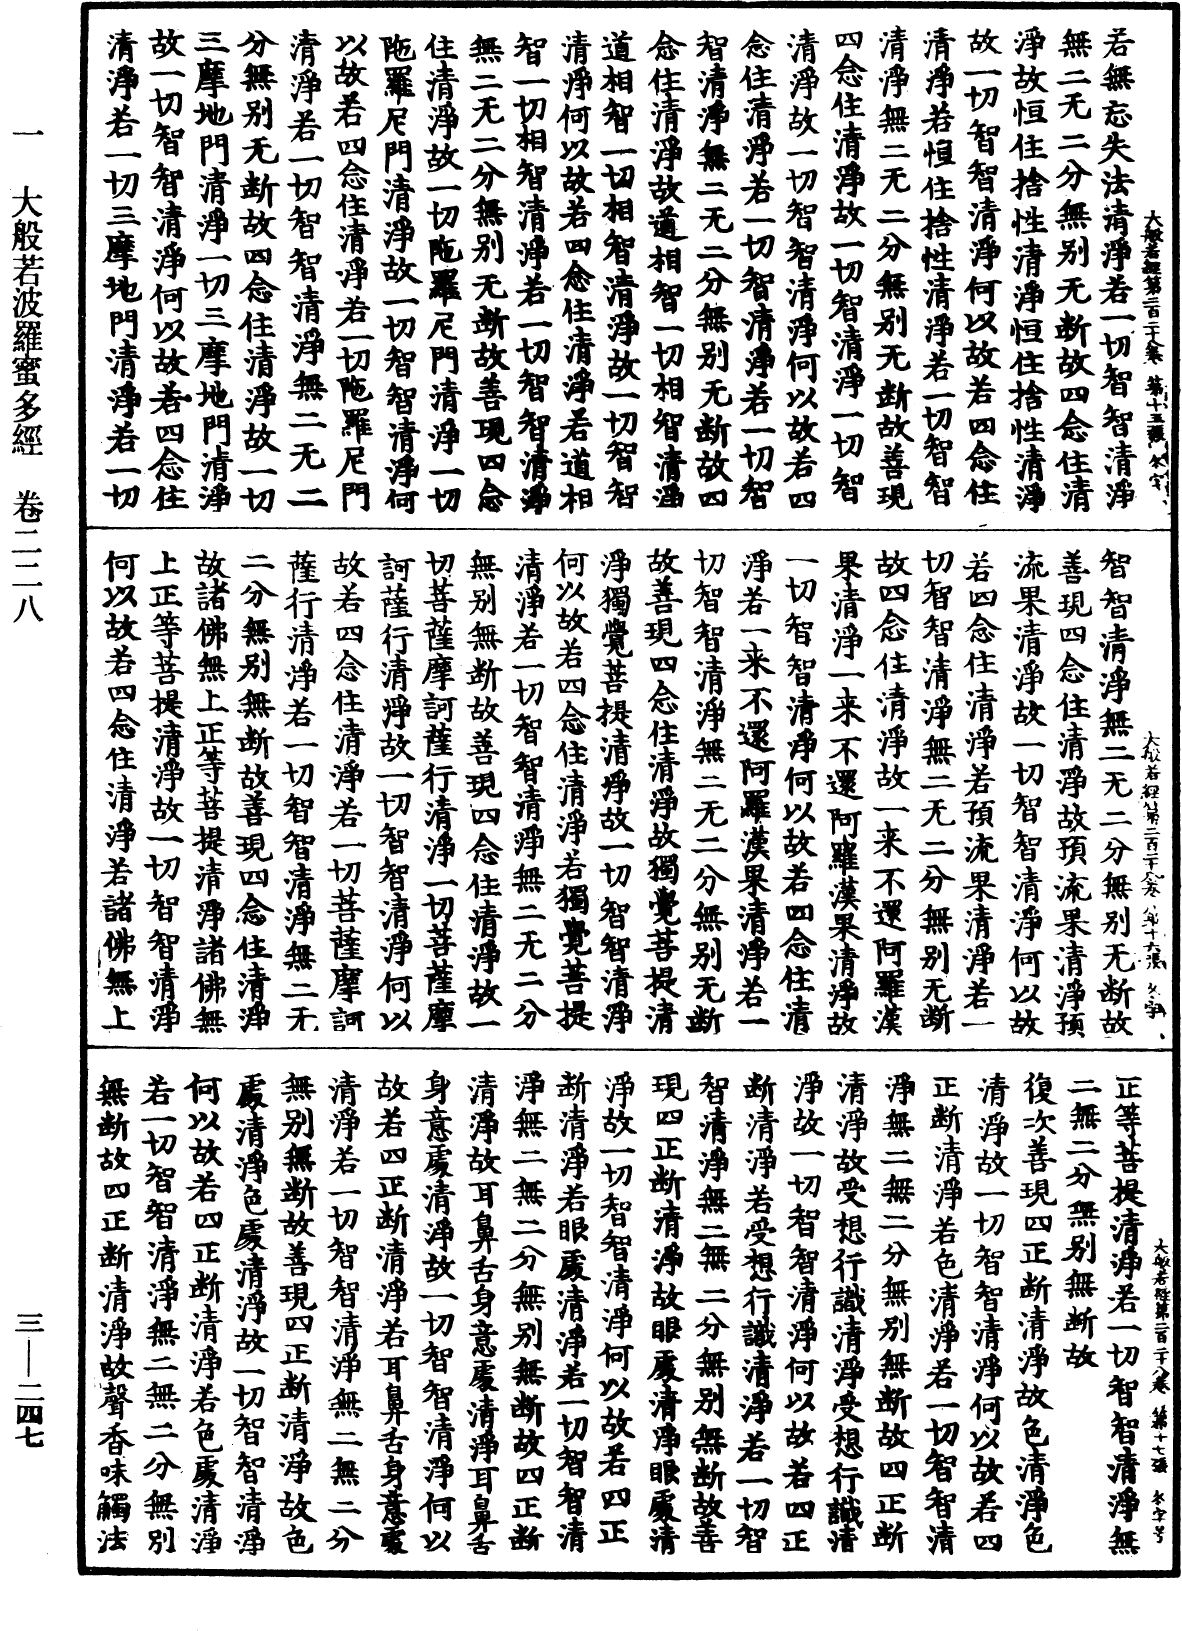 大般若經第二百二十八卷 第十五張 冬字号
若無忘失法清淨若一切智智清淨
無二无二分無别无断故四念住清
淨故恒住捨性清淨恒住捨性清淨
故一切智智清淨何以故若四念住
清淨若恒住捨性清淨若一切智智
清淨無二无二分無别无断故善現
四念住清淨故一切智清淨一切智
清淨故一切智智清淨何以故若四
念住清淨若一切智清淨若一切智
智清淨無二无二分無别无断故四
念住清淨故道相智一切相智清淨
道相智一切相智清淨故一切智智
清淨何以故若四念住清淨若道相
智一切相智清淨若一切智智清淨
無二无二分無别无断故善現四念
住清淨故一切陁羅尼門清淨一切
陁羅尼門清淨故一切智智清淨何
以故若四念住清淨若一切陁羅尼門
清淨若一切智智清淨無二无二
分無别无断故四念住清淨故一切
三摩地門清淨一切三摩地門清淨
故一切智智清淨何以故若四念住
清淨若一切三摩地門清淨若一切
大般若經第二百二十八卷 第十六張 冬字
智智清淨無二无二分無别无断故
善現四念住清淨故預流果清淨預
流果清淨故一切智智清淨何以故
若四念住清淨若預流果清淨若一
切智智清淨無二无二分無别无断
故四念住清淨故一来不還阿羅漢
果清淨一来不還阿羅漢果清淨故
一切智智清淨何以故若四念住清
淨若一来不還阿羅漢果清淨若一
切智智清淨無二无二分無别无断
故善現四念住清淨故獨覺菩提清
淨獨覺菩提清淨故一切智智清淨
何以故若四念住清淨若獨覺菩提
清淨若一切智智清淨無二无二分
無别無断故善現四念住清淨故一
切菩薩摩訶薩行清淨一切菩薩摩
訶薩行清淨故一切智智清淨何以
故若四念住清淨若一切菩薩摩訶
薩行清淨若一切智智清淨無二无
二分無别無断故善現四念住清淨
故諸佛無上正等菩提清淨諸佛無
上正等菩提清淨故一切智智清淨
何以故若四念住清淨若諸佛無上
大般若經第二百二十八卷 第十七張 冬字号
正等菩提清淨若一切智智清淨無
二無二分無别無断故
復次善現四正断清淨故色清淨色
清淨故一切智智清淨何以故若四
正断清淨若色清淨若一切智智清
淨無二無二分無别無断故四正断
清淨故受想行識清淨受想行識清
淨故一切智智清淨何以故若四正
断清淨若受想行識清淨若一切智
智清淨無二無二分無别無断故善
現四正断清淨故眼處清淨眼處清
淨故一切智智清淨何以故若四正
断清淨若眼處清淨若一切智智清
淨無二無二分無别無断故四正断
清淨故耳鼻舌身意處清淨耳鼻舌
身意處清淨故一切智智清淨何以
故若四正断清淨若耳鼻舌身意處
清淨若一切智智清淨無二無二分
無别無断故善現四正断清淨故色
處清淨色處清淨故一切智智清淨
何以故若四正断清淨若色處清淨
若一切智智清淨無二無二分無别
無断故四正断清淨故聲香味觸法
一 大般若波羅蜜多經 卷二二八 三—二四七